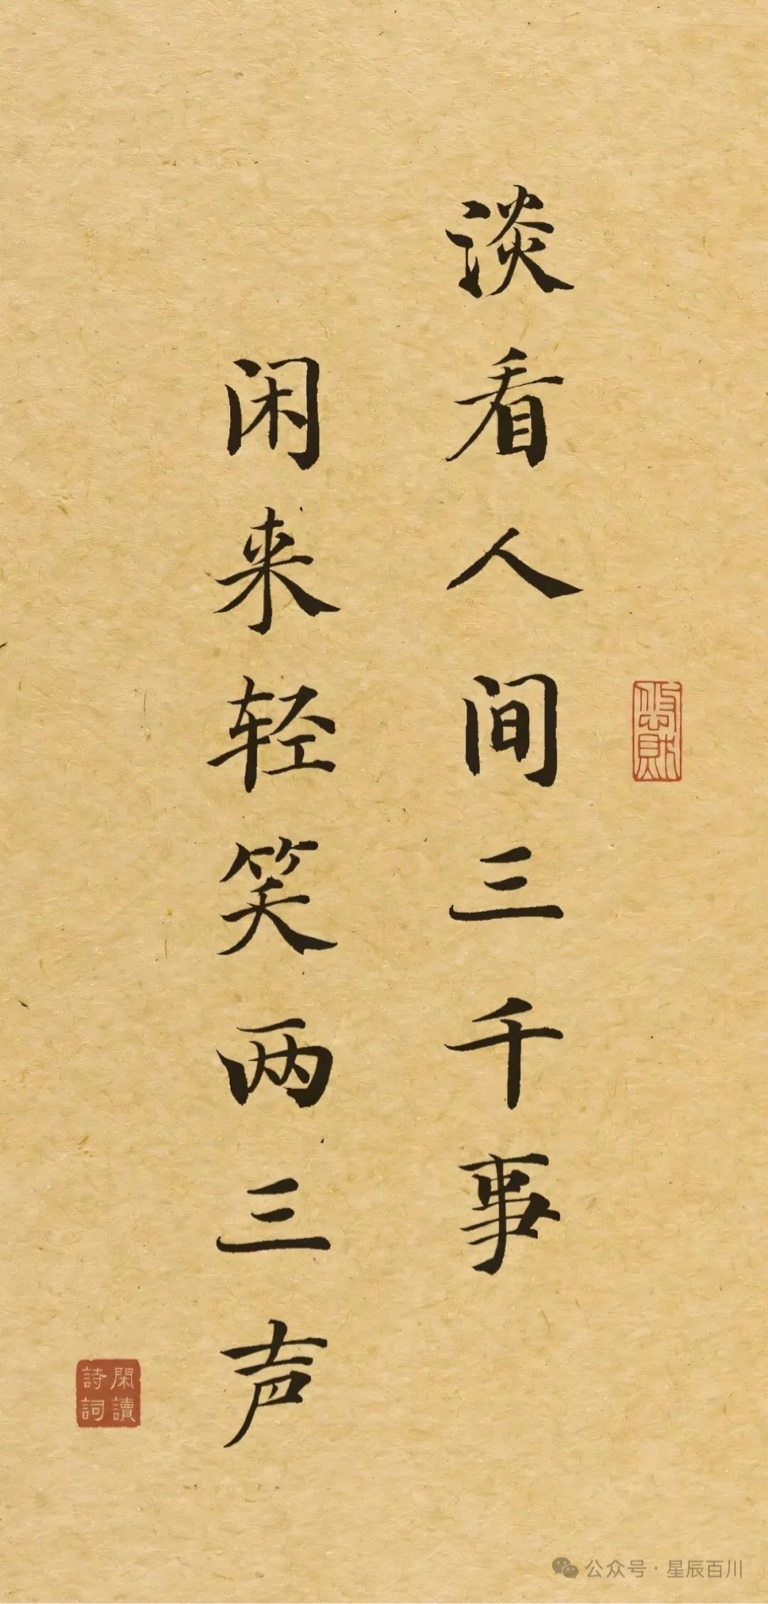 淡看人间三千事
闲来轻笑两三声
閑讀
詩詞
公众号·星辰百川